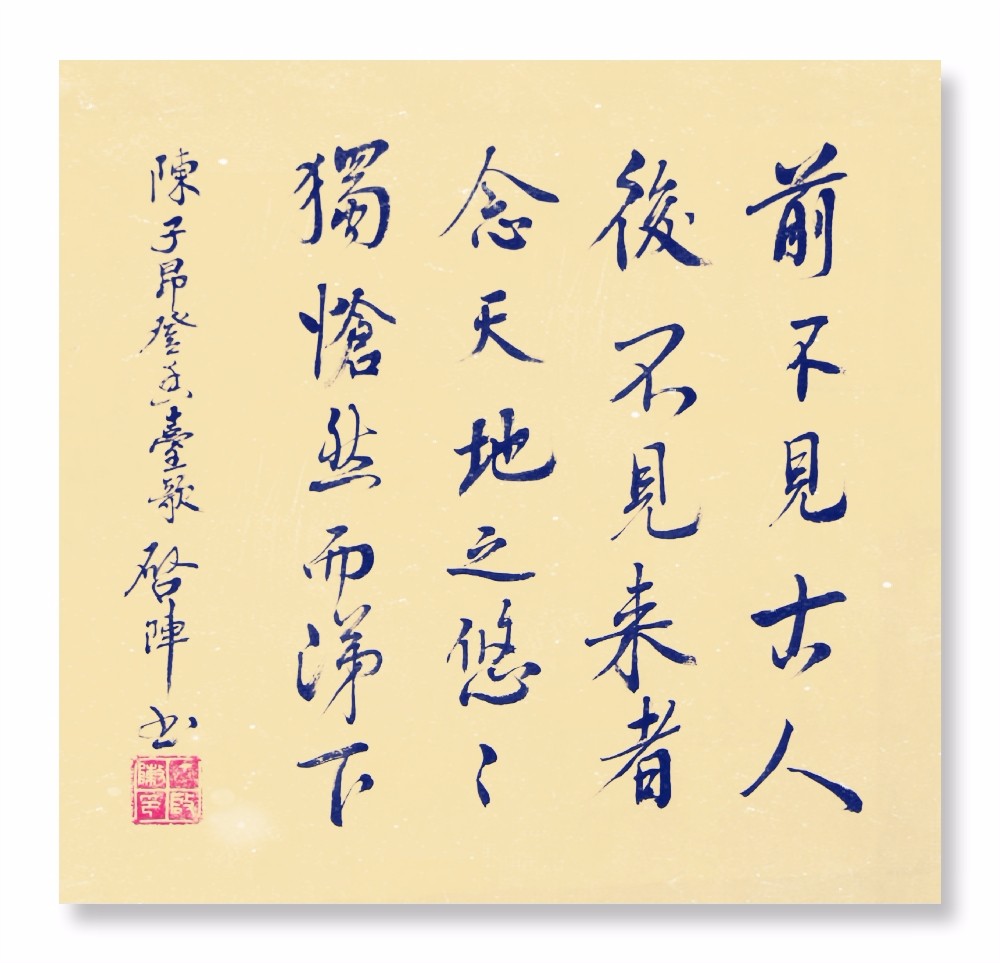 前不見古人
後不見来者
念天地之悠〻
獨愴然而涕下
陳子昂登幽臺歌 啓陣书